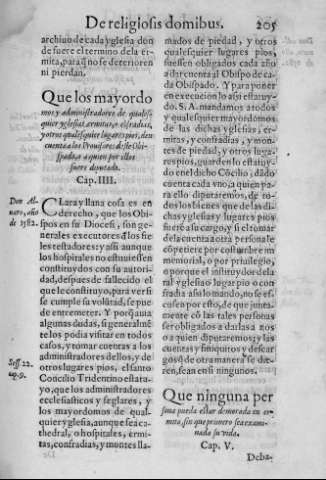 De religiosis domibus. 205
archiuo de cada yglesia don
de fuere el termino dela er-
mita, para q̃ no se deterioren
ni pierdan.
Que los mayordo
mos y administradores de quales-
quier yglesias, ermitas, o cofradias,
y otros qualesquier lugares pios, den
cuenta a los Prouisores deste Obis-
pado, o a quien por ellos
fuere diputado.
Cap. IIII.
Don Al-
uaro, año
de 1582.
CLara y llana cosa es en
derecho, que los Obis-
pos en su Diocesi, son ge-
nerales executores d̃ los fie-
les testadores: y assi aunque
los hospitales no estuuiessen
constituydos con su autori-
dad, despues de fallecido el
que le constituyo, para ver si
se cumple su volũtad, se pue-
de entremeter. Y porq̃ auia
algunas dudas, si generalmẽ
te los podia visitar en todos
casos, y tomar cuentas a los
administradores dellos, y de
otros lugares pios, el santo
Concilio Tridentino estatu-
yo, que los administradores
ecclesiasticos y seglares, y
los mayordomos de qual-
quier yglesia, aunque sea ca-
thedral, o hospitales, ermi-
tas, confradias, y montes lla-
Sess. 22.
cap. 9.
mados de piedad, y otros
qualesquier lugares pios,
fuessen obligados cada año
a dar cuenta al Obispo de ca-
da Obispado. Y para poner
en execucion lo assi estatuy-
do. S. A. mandamos a todos
y qualesquier mayordomos
de las dichas yglesias, er-
mitas, y confradias, y mon-
tes de piedad, y otros luga-
res pios, guarden lo estatuy-
do enel dicho Cõcilio, dãdo
cuenta cada vno, a quien pa-
ra ello diputaremos, de to-
dos los bienes que de las di-
chas yglesias y lugares pios
fuere a su cargo, y si el tomar
dela cuenta a otra personale
cõpetiere por costumbre in
memorial, o por priuilegio,
o porque el instituydor dela
tal yglesia o lugar pio o con
fradria assi lo mando, no se es-
cusen por esto, de que junta-
mente cõ las tales personas
ser obligados a darlas a nos
o a quien diputaremos, y las
cuentas y finiquitos y descar-
gos q̃ de otra manera se die-
ren, sean en si ningunos.
Que ninguna per
sona pueda estar de morada en er-
mita, sin que primero sea exami-
nada su vida.
Cap. V.
Deba-